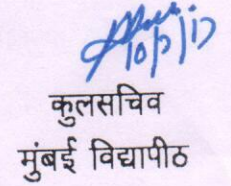 10/7/17
कुलसचिव
मुंबई विद्यापीठ